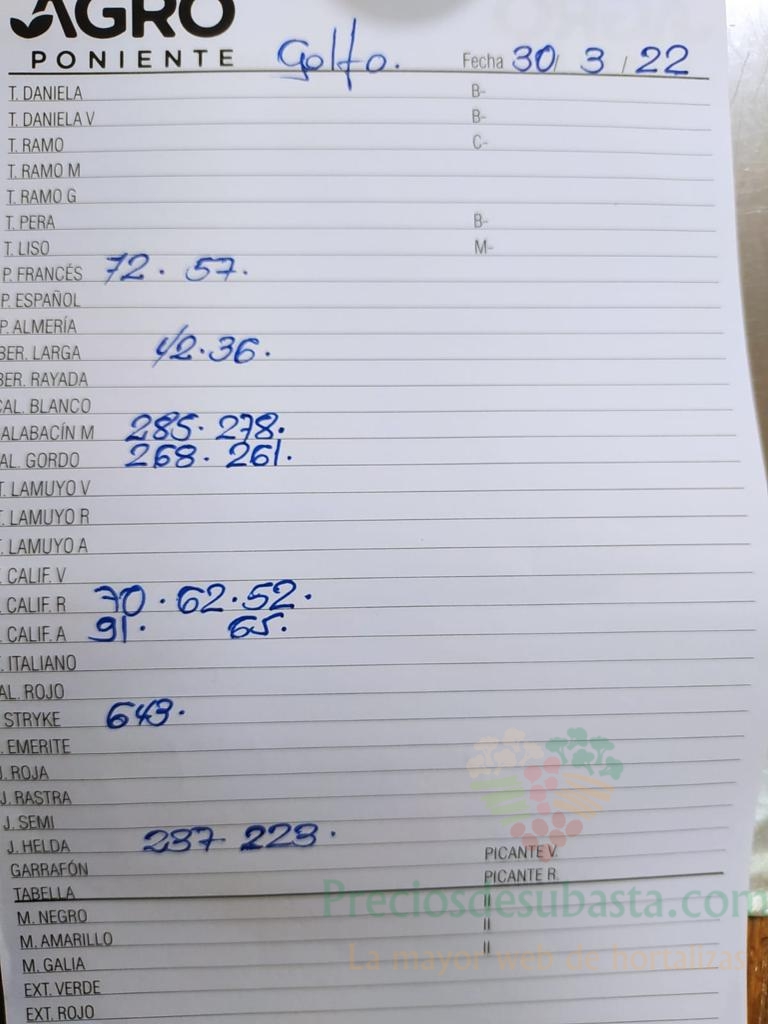 AGRO
PONIENTE Golfo. Fecha 30/ 3 / 22
T. DANIELA B-
T. DANIELA V B-
T. RAMO C-
T. RAMO M
T. RAMO G
T. PERA B-
T. LISO M-
P. FRANCÉS 72. 57.
P. ESPAÑOL
P. ALMERÍA
BER. LARGA 42.36.
BER. RAYADA
CAL. BLANCO
ALABACÍN M 285. 278.
AL. GORDO 268. 261.
T. LAMUYO V
T. LAMUYO R
T. LAMUYO A
CALIF. V
CALIF. R 70.62.52.
CALIF. A 91. 65.
. ITALIANO
AL. ROJO
STRYKE 643.
. EMERITE
J. ROJA
J. RASTRA
J. SEMI
J. HELDA 237 223.
GARRAFÓN PICANTE V.
TABELLA PICANTE R.
M. NEGRO "
M. AMARILLO "
M. GALIA "
EXT. VERDE
EXT. ROJO
Preciosdesubasta.com
La mayor web de hortalizas